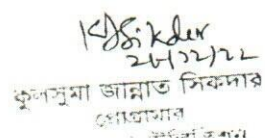 KJSikder
26/12/22
কুলসুমা জান্নাত সিকদার
প্রোগ্রামার